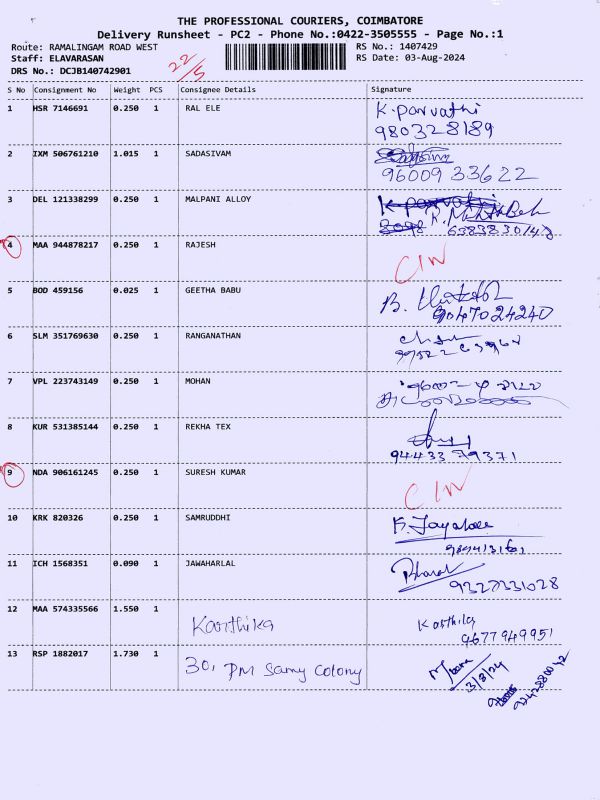 THE PROFESSIONAL COURIERS, COIMBATORE
Delivery Runsheet - PC2 - Phone No.:0422-3505555 - Page No.:1
Route: RAMALINGAM ROAD WEST
Staff: ELAVARASAN
DRS No.: DCJB140742901
22/5
RS No.: 1407429
RS Date: 03-Aug-2024
S No Consignment No Weight PCS Consignee Details Signature
1 HSR 7146691 0.250 1 RAL ELE K. Parvathi
980328189
2 IXM 506761210 1.015 1 SADASIVAM
96009 33622
3 DEL 121338299 0.250 1 MALPANI ALLOY
4 MAA 944878217 0.250 1 RAJESH CIN
5 BOD 459156 0.025 1 GEETHA BABU B.
9047024240
6 SLM 351769630 0.250 1 RANGANATHAN
7 VPL 223743149 0.250 1 MOHAN
8 KUR 531385144 0.250 1 REKHA TEX
94433 79371
9 NDA 906161245 0.250 1 SURESH KUMAR CIN
10 KRK 820326 0.250 1 SAMRUDDHI
11 ICH 1568351 0.090 1 JAWAHARLAL Bharat
9327331028
12 MAA 574335566 1.550 1 Karthika Karthika
9677949951
13 RSP 1882017 1.730 1 30, PM Samy Colony
3/8/24